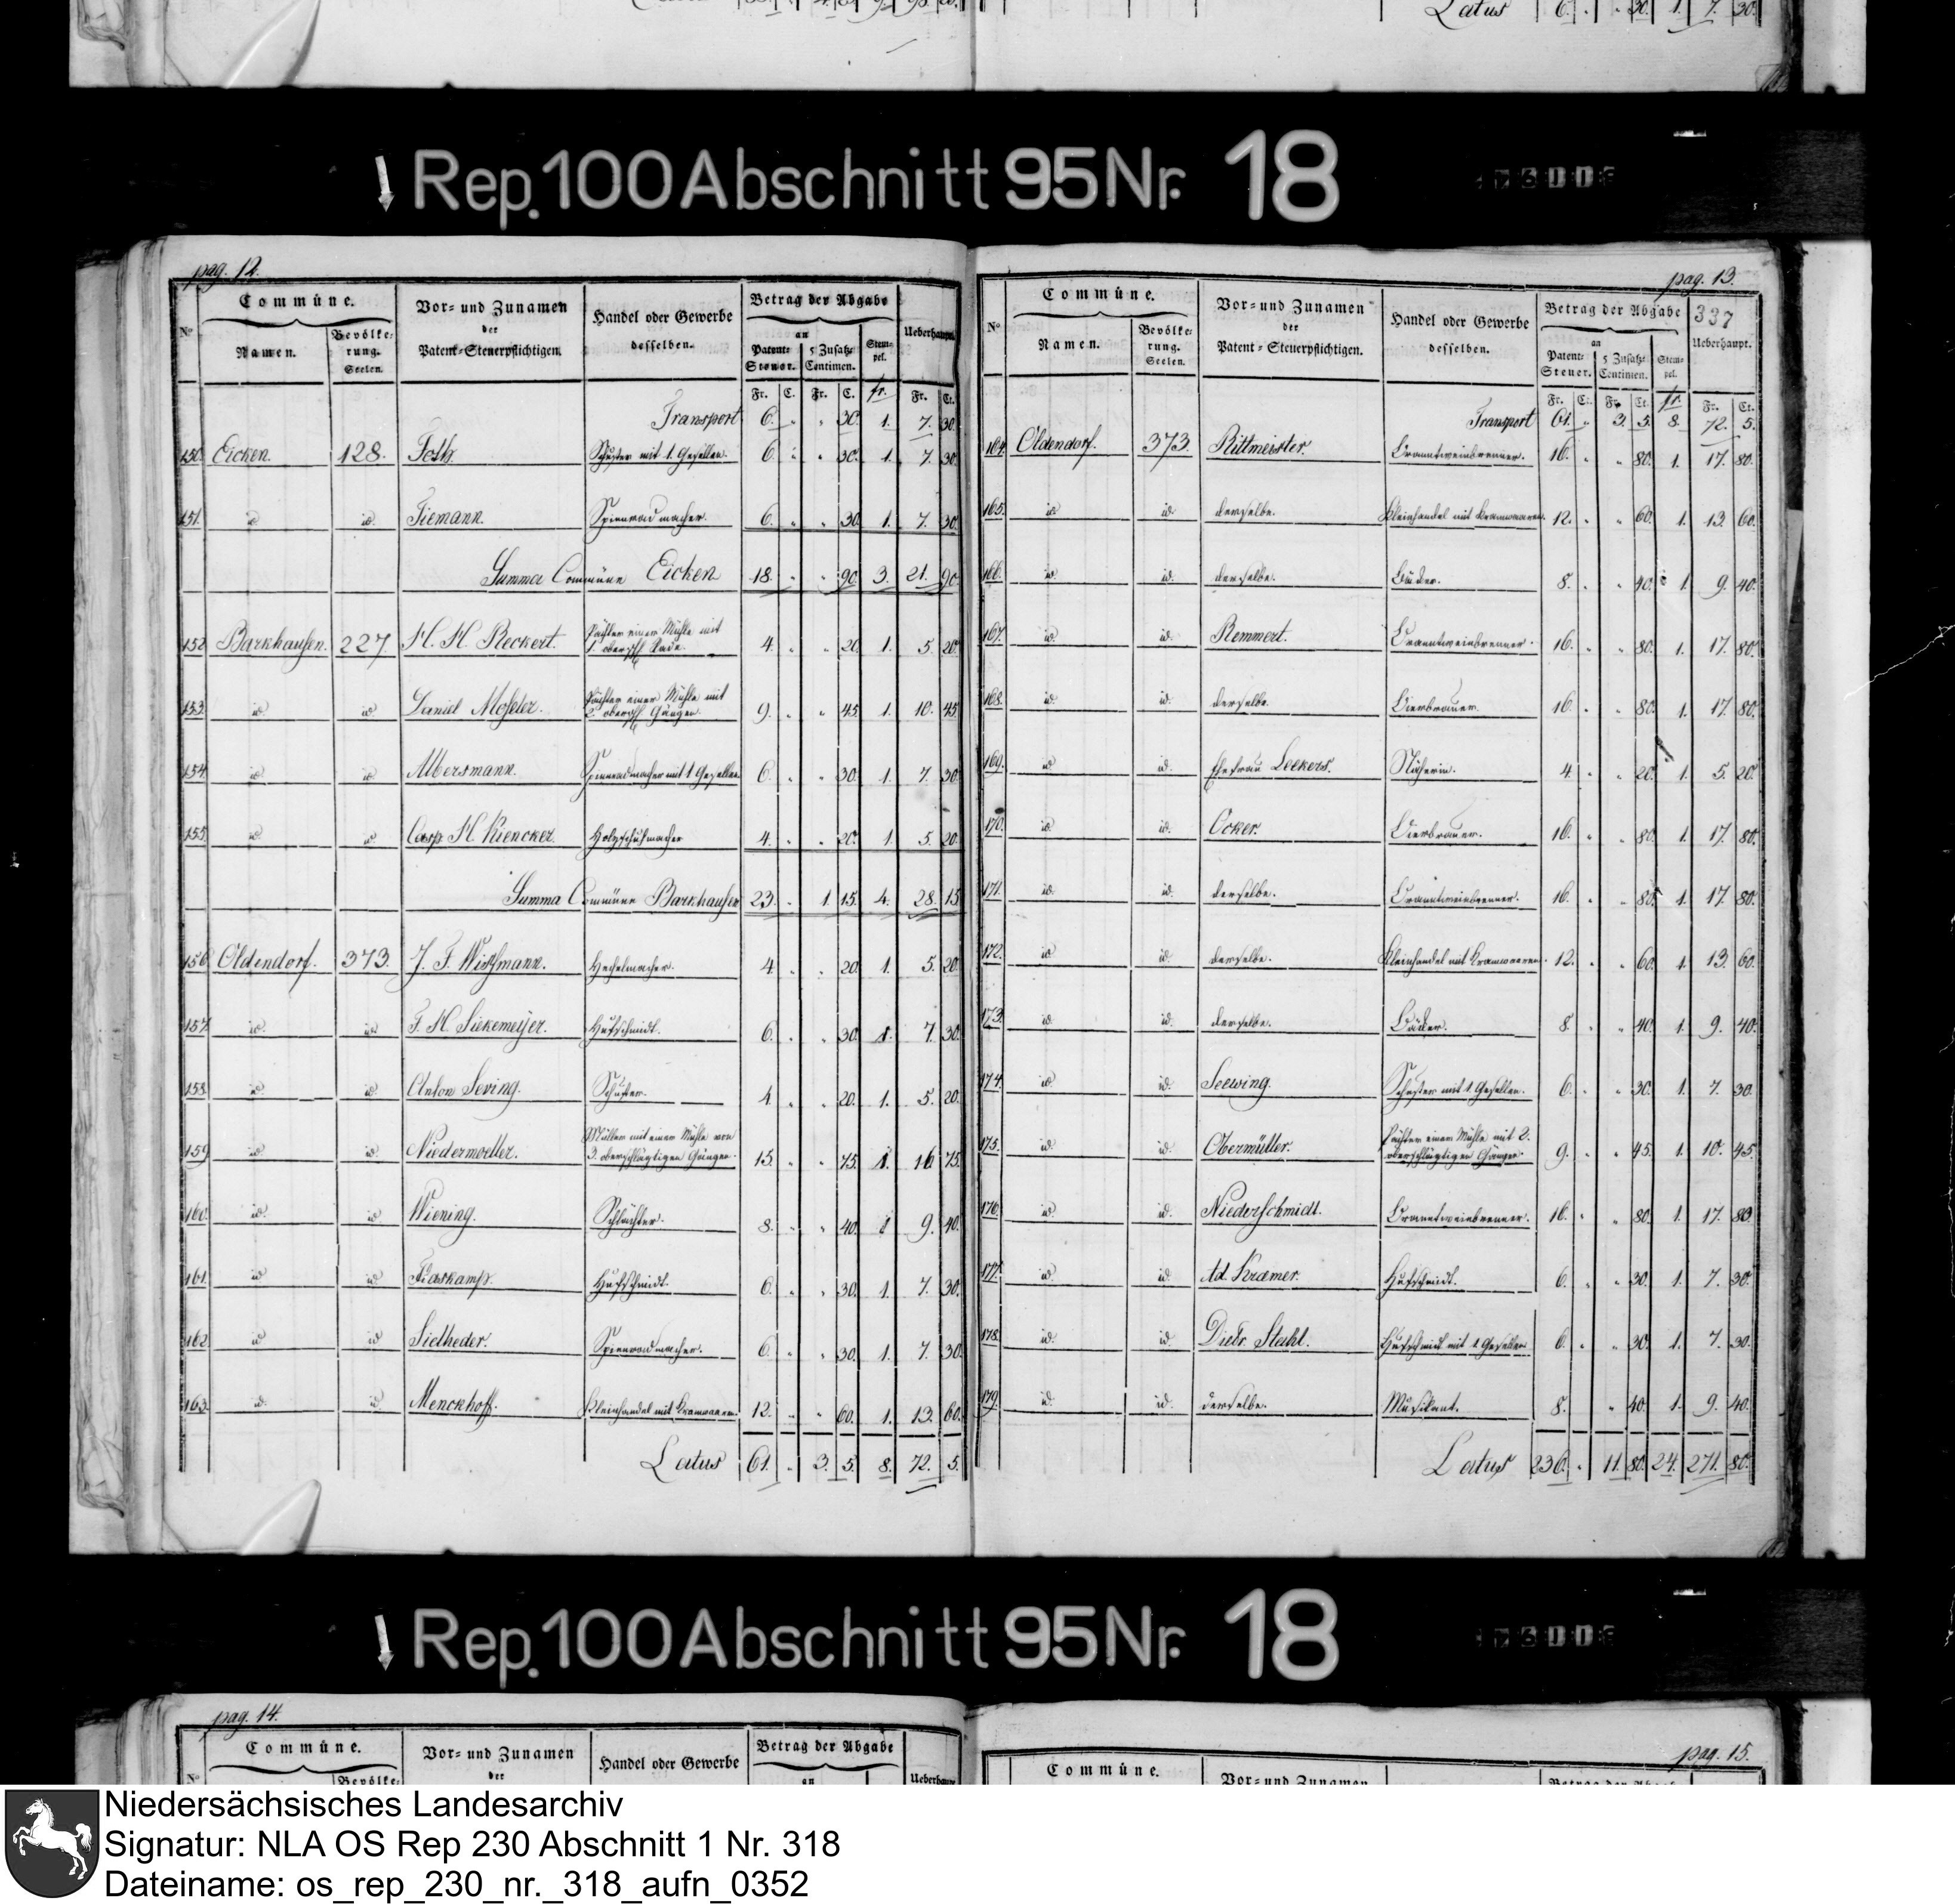 Latus 6. 30. 1. 7. 30.
Rep. 100 Abschnitt 95 Nr. 18
pag. 12.
Commüne.
Vor- und Zunamen
der
Patent-Steuerpflichtigen.
Handel oder Gewerbe
desselben.
Betrag der Abgabe
an
Ueberhaupt.
No
Namen.
Bevölke-
rung.
Seelen.
Patent-
Steuer.
5 Zusatz-
Centimen.
Stem-
pel.
Fr. C. Fr. C. fr. Fr. Ct.
Transport 6. " " 30. 1. 7. 30.
150. Eicken. 128. Schuster mit 1. Gesellen. 6. " " 30. 1. 7. 30.
151. id id. Tiemann. Spinnradmacher. 6. " " 30. 1. 7. 30.
Summa Commüne Eicken 18. " " 90. 3. 21. 90.
152. Barkhausen. 227. H. H. Reckert. Pächter einer Mühle mit
1. oberschl. Rade. 4. " " 20. 1. 5. 20.
153. id. id. Daniel Mosler. Pächter einer Mühle mit
2. oberschl. Gängen. 9. " " 45. 1. 10. 45.
154. id id Albersmann. Spinnradmacher mit 1 Gesellen. 6. " " 30. 1. 7. 30.
155. id id. Casp. H. Kiencker. Holzschuhmacher 4. " " 20. 1. 5. 20.
Summa Commüne Barkhausen 23. " 1. 15. 4. 28. 15.
156. Oldendorf. 373. J. F. Wissmann. Hechelmacher. 4 " " 20. 1. 5. 20.
157. id. id F. H. Siekemeijer. Hufschmidt. 6. " " 30. 1. 7. 30.
158. id id. Anton Seving. Schuster. 4 " " 20. 1. 5. 20.
159. id id Niedermoeller. Müller mit einer Mühle von
3. oberschlägtigen Gängen. 15. " " 75. 1. 16. 75.
160. id. id Wiening. Schlächter. 8. " " 40. 1 9. 40.
161. id id Flaskamp. Hufschmidt. 6. " " 30. 1. 7. 30.
162. id id Sielheder. Spinnradmacher. 6. " " 30. 1. 7. 30.
163. id. id Menckhoff. Kleinhandel mit Kramwaaren. 12. " " 60. 1. 13. 60.
Latus 61. " 3. 5. 8. 72. 5.
pag. 13.
337
Commüne.
Vor- und Zunamen
der
Patent-Steuerpflichtigen.
Handel oder Gewerbe
desselben.
Betrag der Abgabe
an
Ueberhaupt.
No
Namen.
Bevölke-
rung.
Seelen.
Patent-
Steuer.
5 Zusatz-
Centimen.
Stem-
pel.
Fr. Ct. Fr. Ct. fr. Fr. Ct.
Transport 61. " 3. 5. 8. 72. 5.
164. Oldendorf. 373. Rittmeister. Branntweinbrenner. 16. " " 80. 1. 17. 80.
165. id id. derselbe. Kleinhandel mit Kramwaaren. 12. " " 60. 1. 13. 60.
166. id id. derselbe. Bäcker. 8. " " 40. 1. 9. 40.
167. id. id. Remmert. Branntweinbrenner. 16. " " 80. 1. 17. 80.
168. id. id. derselbe. Bierbrauer. 16. " " 80. 1. 17. 80.
169. id id. Ehefrau Leckers. Näherin. 4 " " 20. 1. 5. 20.
170. id. id. Ocker. Bierbrauer. 16. " " 80. 1. 17. 80.
171. id. id. derselbe. Branntweinbrenner. 16. " " 80. 1. 17. 80.
172. id id. derselbe. Kleinhandel mit Kramwaaren. 12. " " 60. 1. 13. 60.
173. id. id. derselbe. Bäcker. 8. " " 40. 1. 9. 40.
174. id id. Seewing. Schuster mit 1 Gesellen. 6. " " 30. 1. 7. 30.
175. id. id. Obermüller. Pächter einer Mühle mit 2.
oberschlägtigen Gängen. 9. " " 45. 1. 10. 45.
176. id id. Niederschmidt. Branntweinbrenner. 16. " " 80. 1. 17. 80.
177. id id. Ad. Kramer. Hufschmidt. 6. " " 30. 1. 7. 30.
178. id. id Dietr. Stahl. Hufschmidt mit 1 Gesellen 6. " " 30. 1. 7. 30.
179. id. id. derselbe. Musikant. 8. " 40. 1. 9. 40.
Latus 236. " 11. 80. 24. 271. 80.
Rep. 100 Abschnitt 95 Nr. 18
pag. 14.
Commüne.
Vor- und Zunamen
der
Handel oder Gewerbe
Betrag der Abgabe
an
pag. 15.
Commüne.
Vor- und Zunamen
Niedersächsisches Landesarchiv
Signatur: NLA OS Rep 230 Abschnitt 1 Nr. 318
Dateiname: os_rep_230_nr._318_aufn_0352